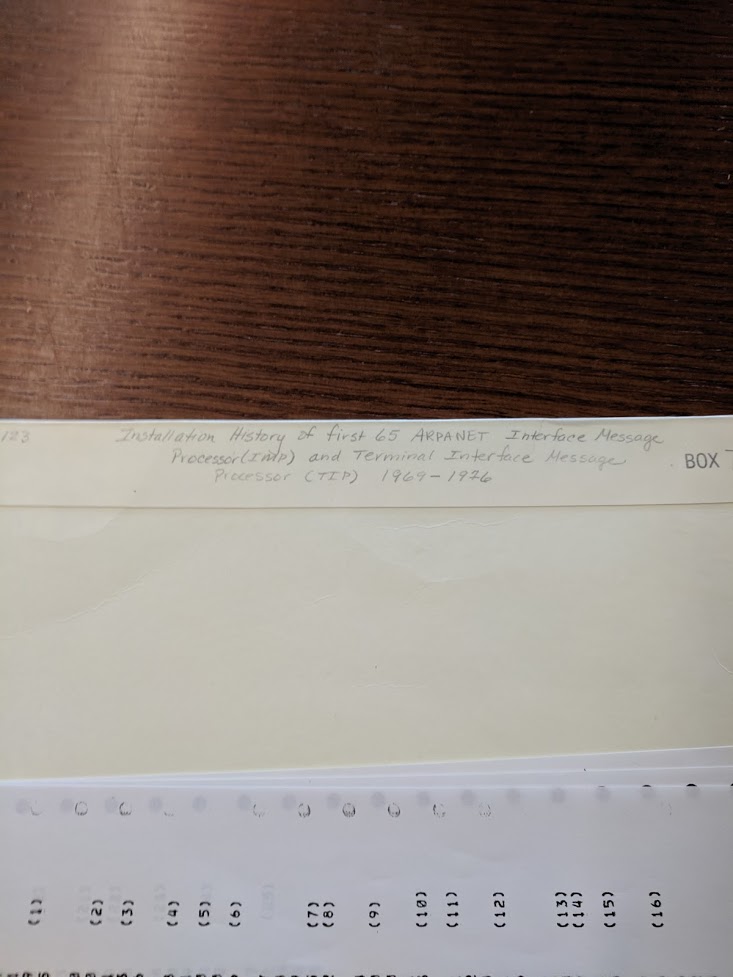 123
Installation History of first 65 ARPANET Interface Message
Processor(IMP) and Terminal Interface Message
Processor (TIP) 1969-1976
BOX
(1) (2) (3) (4) (5) (6) (7) (8) (9) (10) (11) (12) (13) (14) (15) (16)